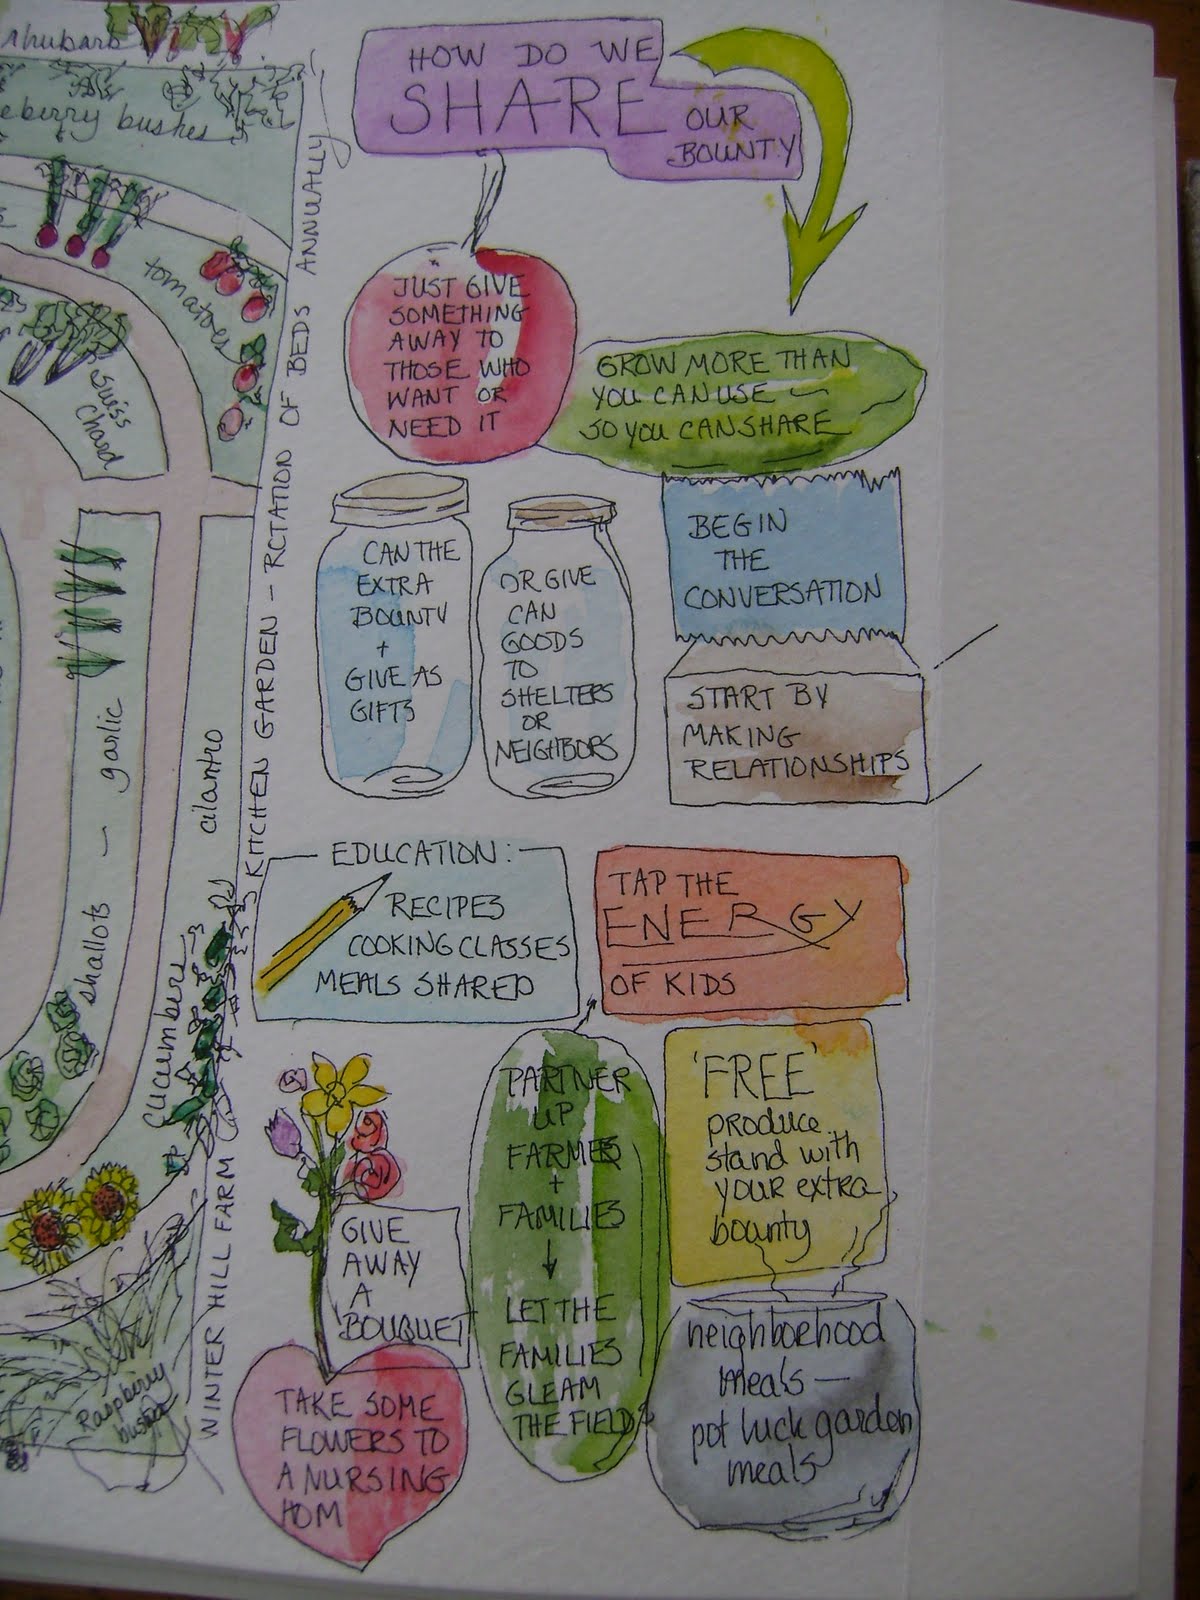 rhubarb
eberry bushes
tomatoes
Swiss
Chard
garlic
shallots —
cilantro
cucumbers
Raspberry
bushes
WINTER HILL FARM KITCHEN GARDEN - ROTATION OF BEDS ANNUALLY
HOW DO WE
SHARE
OUR
BOUNTY
JUST GIVE
SOMETHING
AWAY TO
THOSE WHO
WANT OR
NEED IT
GROW MORE THAN
YOU CAN USE —
SO YOU CAN SHARE
CAN THE
EXTRA
BOUNTY
+
GIVE AS
GIFTS
OR GIVE
CAN
GOODS
TO
SHELTERS
OR
NEIGHBORS
BEGIN
THE
CONVERSATION
START BY
MAKING
RELATIONSHIPS
EDUCATION:
RECIPES
COOKING CLASSES
MEALS SHARED
TAP THE
ENERGY
OF KIDS
GIVE
AWAY
A
BOUQUET
TAKE SOME
FLOWERS TO
A NURSING
HOM
PARTNER
UP
FARMES
+
FAMILIES
↓
LET THE
FAMILIES
GLEAM
THE FIELDS
'FREE'
produce
stand with
your extra
bounty
neighborhood
meals —
pot luck garden
meals